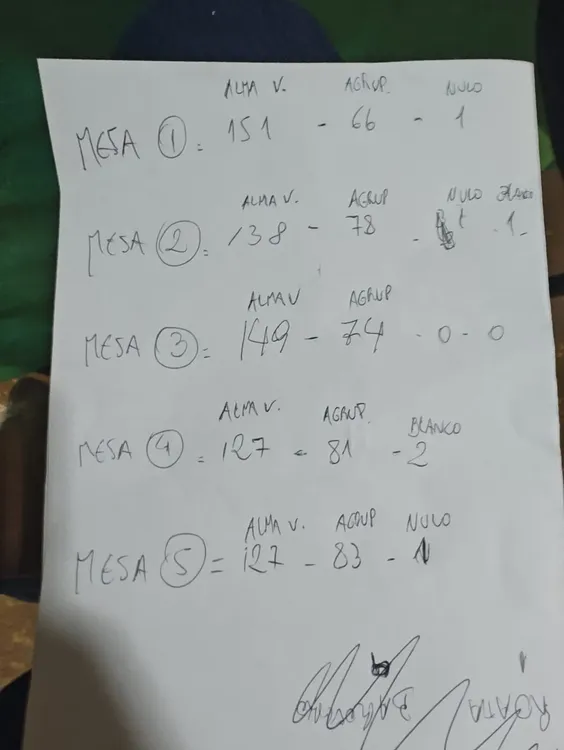 ALMA V. AGRUP. NULO
MESA 1 = 151 - 66 - 1
ALMA V. AGRUP NULO BLANCO
MESA 2 = 138 - 78 - 1 - 1-
ALMA V AGRUP
MESA 3 = 149 - 74 - 0 - 0
ALMA V. AGRUP. BLANCO
MESA 4 = 127 - 81 - 2
ALMA V. AGRUP NULO
MESA 5 = 127 - 83 - 1